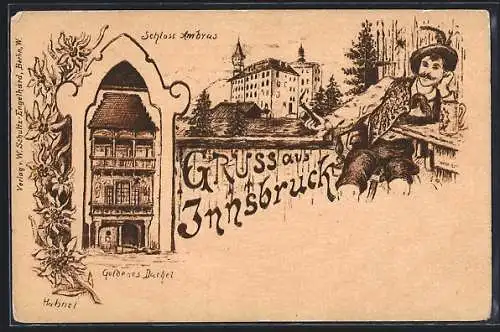 Schloss Ambras
Verlag v. W. Schultz-Engelhard, Berlin, W.
Gruss aus
Innsbruck
Goldenes Dachel